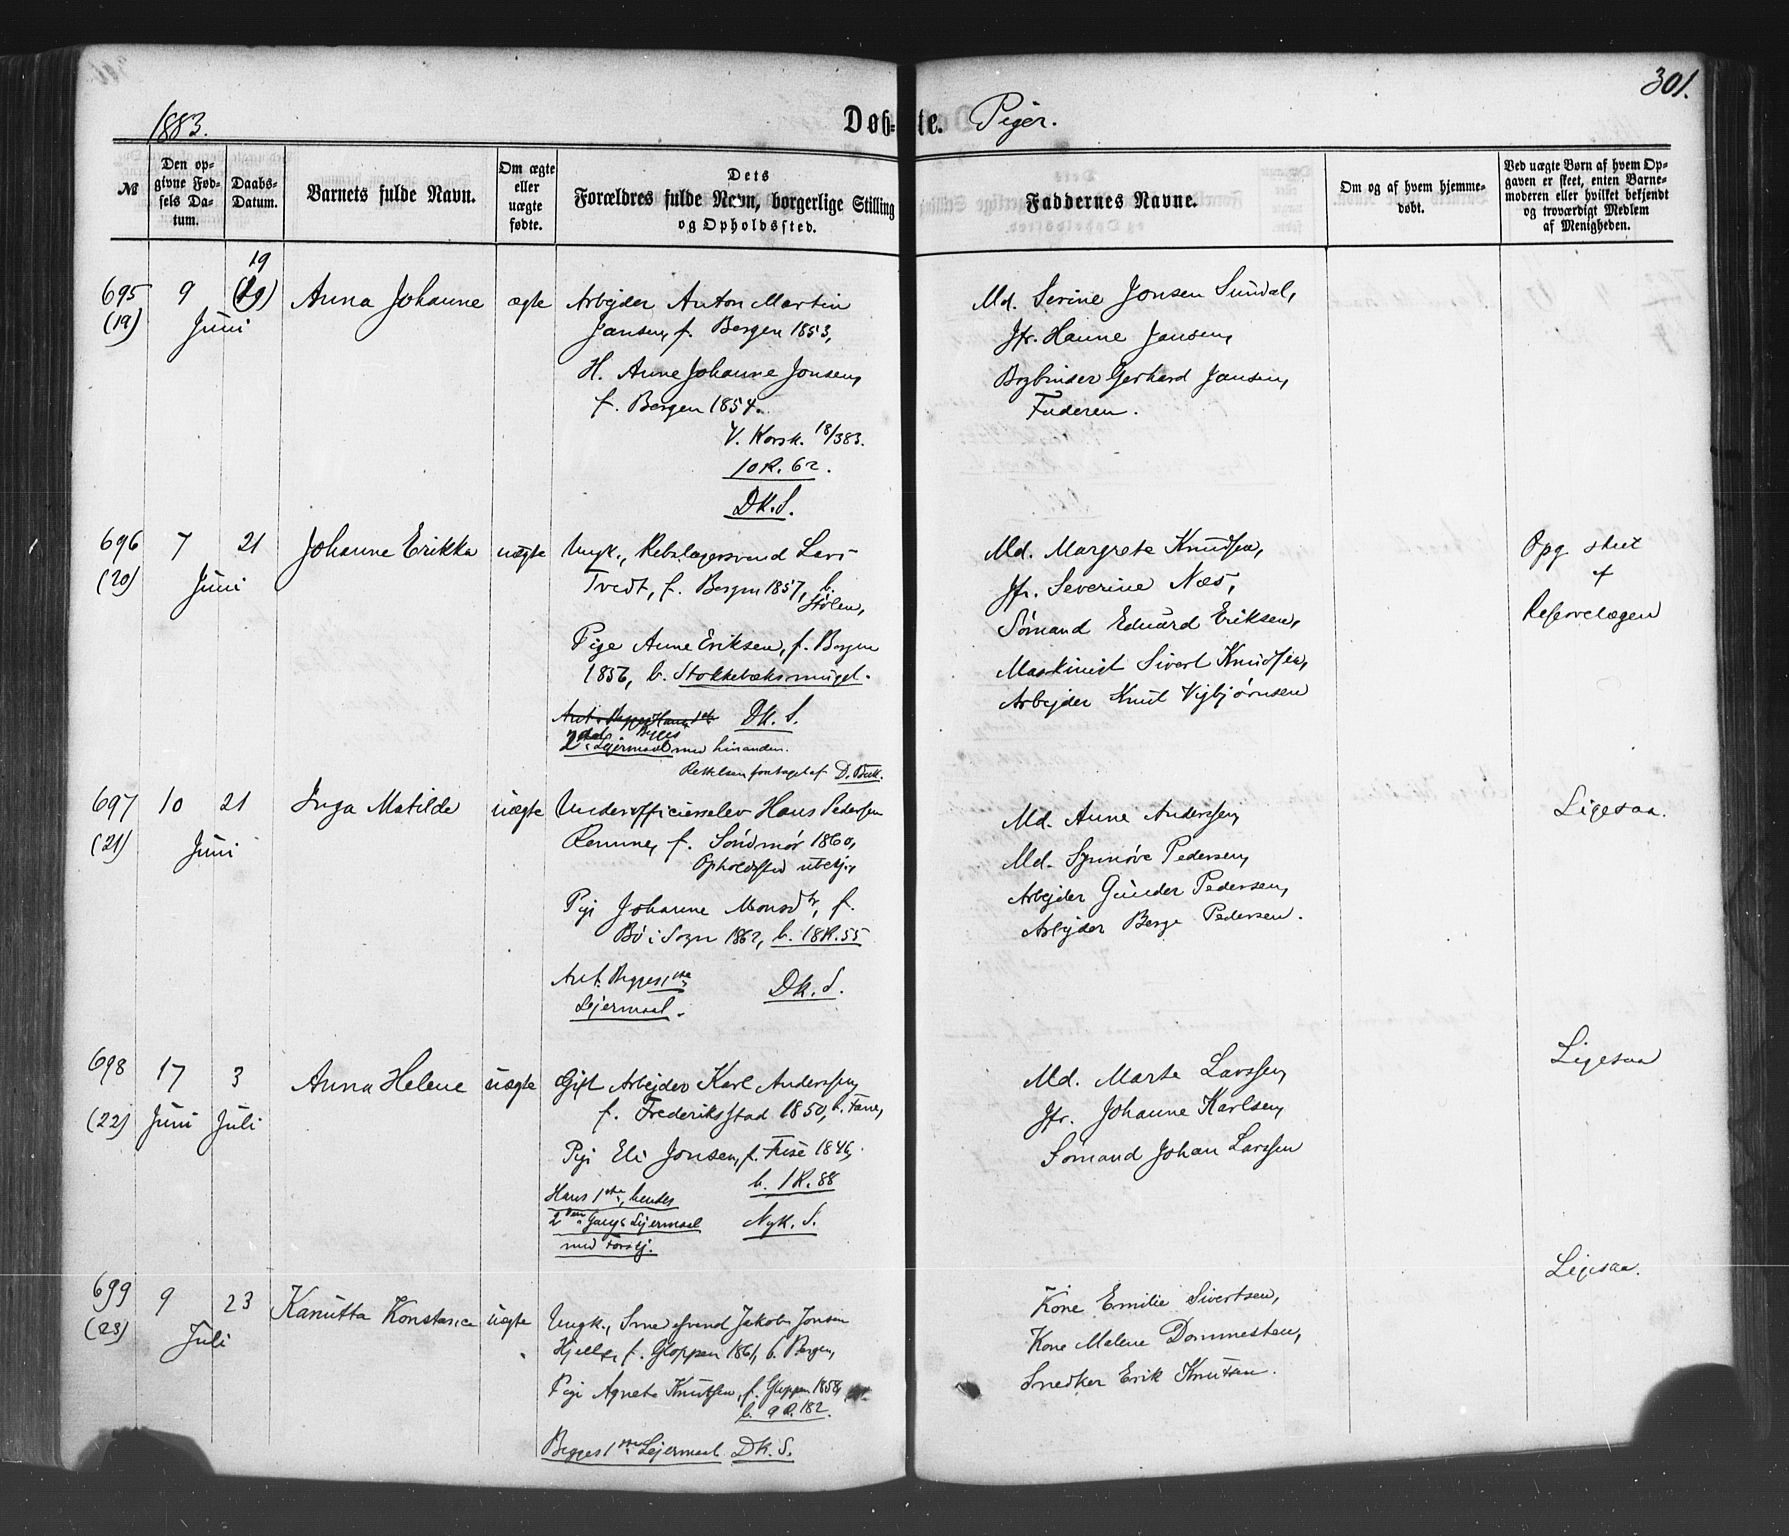 1883.
Døbte. Piger.
301.
№
Den opgivne Fødsels Datum.
Daabs-Datum.
Barnets fulde Navn.
Om ægte eller uægte fødte.
Dets Forældres fulde Navn, borgerlige Stilling og Opholdssted.
Faddernes Navne.
Om og af hvem hjemmedøbt.
Ved uægte Børn af hvem Opgaven er skeet, enten Barnemoderen eller hvilket bekjendt og troværdigt Medlem af Menigheden.
695 (19)
9 19 Juni
Anna Johanne
ægte
Arbejder Anton Martin
Jansen, f. Bergen 1853,
H. Anne Johanne Jonsen,
f. Bergen 1854.
V. Korsk. 18/3 83.
10 R. 62.
DK. S.
Md. Serine Jonsen Sundal,
Jfr. Hanne Jansen,
Bogbinder Gerhard Jansen,
Faderen.
696 (20)
7 21 Juni
Johanne Erikka
uægte
Ungk., Rebslagersvend Lars
Tvedt, f. Bergen 1857, b.
Stølen,
Pige Anne Eriksen, f. Bergen
1856, b. Stokkebæksmuget.
DK. S.
Begges
2det Lejermaal med hinanden.
Rettelsen foretaget af D. Bull.
Md. Margrete Knudsen,
Jfr. Severine Næs,
Sømand Eduard Eriksen,
Maskinist Sivert Knudsen,
Arbejder Knut Vigbjørnsen
Opg skeet
af
Reservelægen
697 (21)
10 21 Juni
Inga Matilde
uægte
Underofficierselev Hans Pedersen
Remme, f. Søndmør 1860,
Opholdssted ubekj.,
Pige Johanne Monsdtr, f.
Bø i Sogn 1862, b. 18 R. 55
Ant. Begges 1ste
Lejermaal.
DK. S.
Md. Anne Anderssen,
Md. Synnøve Pedersen,
Arbejder Gunder Pedersen,
Arbejder Berge Pedersen.
Ligesaa.
698 (22)
17 Juni 3 Juli
Anna Helene
uægte
Gift Arbejder Karl Anderssen,
f. Frederiksstad 1850, b. Fane,
Pige Eli Jonsen, f. 1846,
b. 1 R. 88
Hans 1ste, hendes
2den Gangs Lejermaal
med Forskj.
Nyk. S.
Md. Marte Larssen,
Jfr. Johanne Karlsen,
Sømand Johan Larssen
Ligesaa
699 (23)
9 23 Juli
Kanutta Konstance
uægte
Ungk., Smedsvend Jakob Jonsen
f. Gloppen 1861, b. Bergen,
Pige Agnete Knutsen, f. Gloppen 1858,
b. 9 R. 182.
Begges 1ste Lejermaal. DK. S.
Kone Emilie Sivertsen,
Kone Malene Dommesten,
Snedker Erik Knutsen.
Ligesaa.